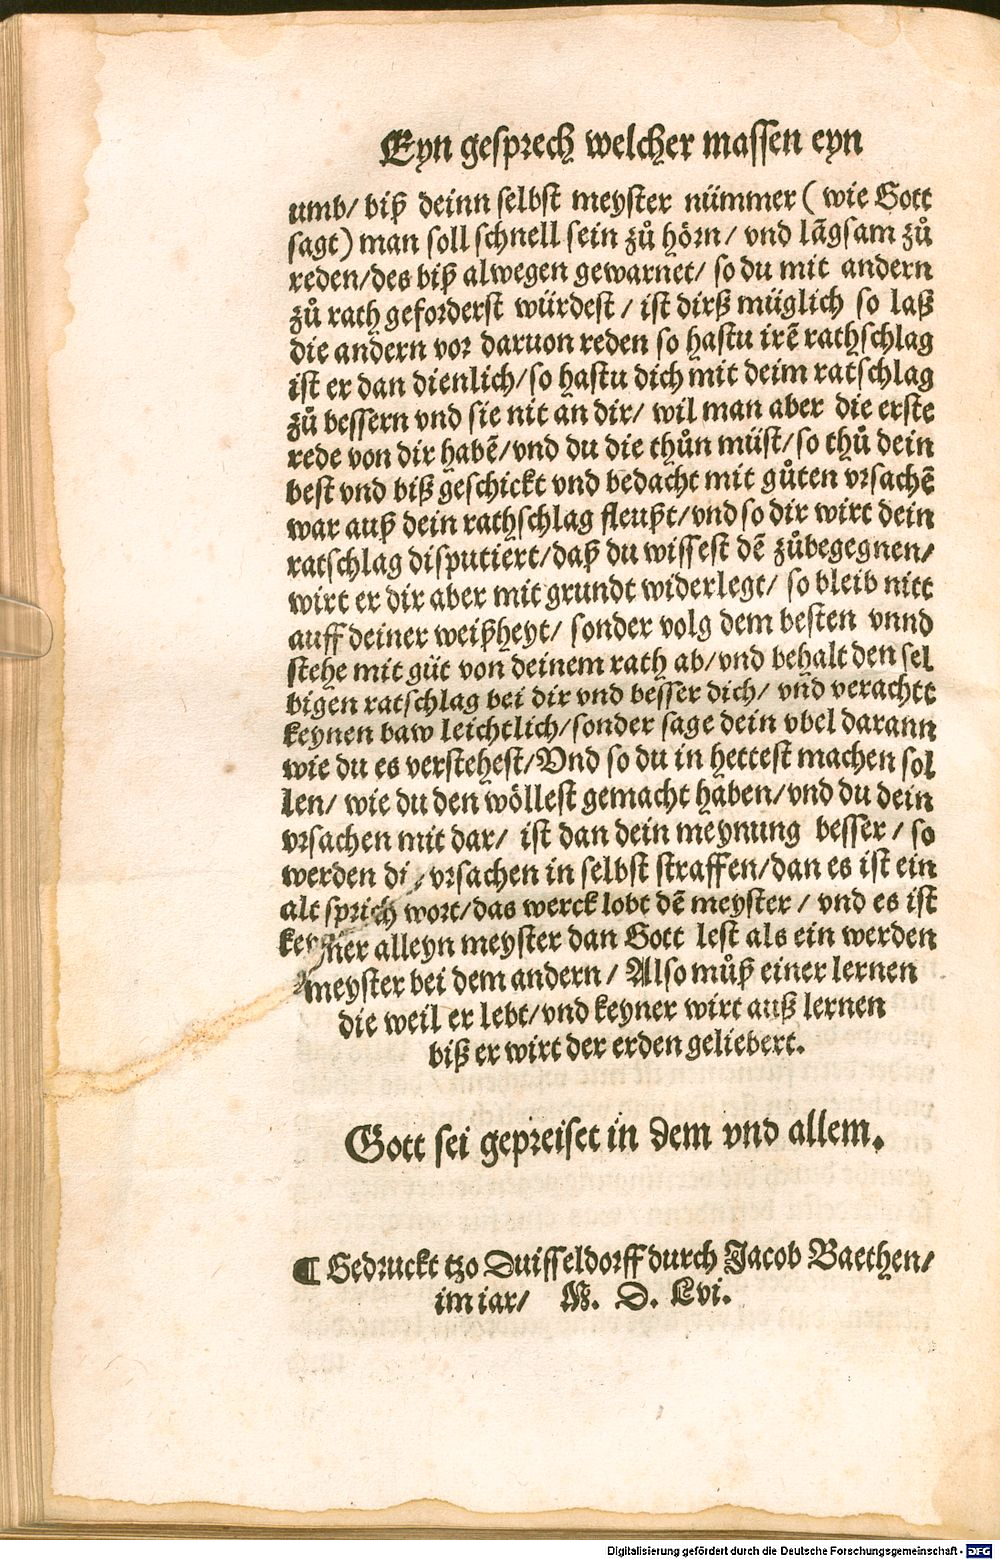 Eyn gesprech welcher massen eyn
umb/ biß deinn selbst meyster nümmer ( wie Gott
sagt) man soll schnell sein zů hörn/ vnd lãgsam zů
reden/des biß alwegen gewarnet/ so du mit andern
zů rath geforderst würdest / ist dirß müglich so laß
die andern vor daruon reden so hastu irẽ rathschlag
ist er dan dienlich/so hastu dich mit deim ratschlag
zů bessern vnd sie nit an dir/ wil man aber die erste
rede von dir habẽ/vnd du die thůn müst/so thů dein
best vnd biß geschickt vnd bedacht mit gůten vrsachẽ
war auß dein rathschlag fleußt/vnd so dir wirt dein
ratschlag disputiert/daß du wissest dẽ zůbegegnen/
wirt er dir aber mit grundt widerlegt/ so bleib nitt
auff deiner weißheyt/ sonder volg dem besten vnnd
stehe mit güt von deinem rath ab/vnd behalt den sel
bigen ratschlag bei dir vnd besser dich/ vñd verachtt
keynen baw leichtlich/sonder sage dein vbel darann
wie du es verstehest/Vnd so du in hettest machen sol
len/ wie du den wöllest gemacht haben/vnd du dein
vrsachen mit dar/ ist dan dein meynung besser / so
werden di vrsachen in selbst straffen/dan es ist ein
alt sprich wort/das werck lobt dẽ meyster / vnd es ist
keyner alleyn meyster dan Gott lest als ein werden
meyster bei dem andern / Also můß einer lernen
die weil er lebt/vnd keyner wirt auß lernen
biß er wirt der erden geliebert.
Gott sei gepreiset in dem vnd allem.
¶ Gedruckt tzo Duisseldorff durch Jacob Baethen/
im iar/ M. D. Lvi.
Digitalisierung gefördert durch die Deutsche Forschungsgemeinschaft - DFG